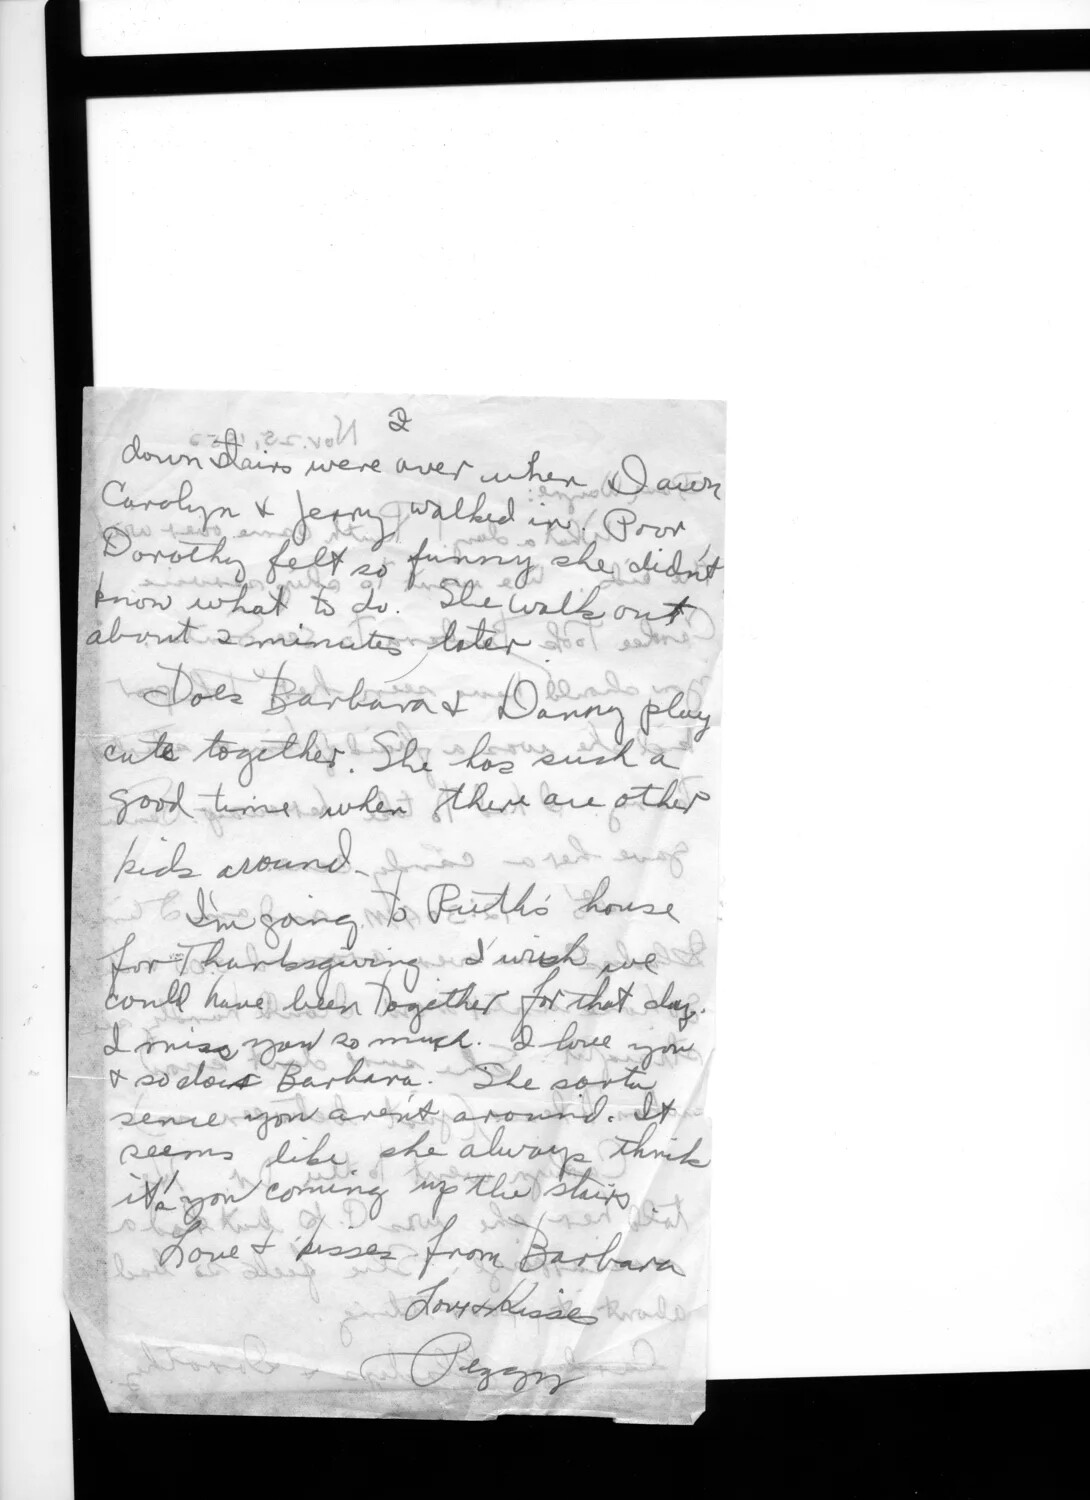 2
down stairs were over when Dawn
Carolyn & Jerry walked in. Poor
Dorothy felt so funny she didn't
know what to do. She walk out
about 2 minutes later.
Does Barbara & Danny play
cute together. She has such a
good time when there are other
kids around.
I'm going to Ruth's house
for Thanksgiving I wish we
could have been together for that day.
I miss you so much. I love you
& so does Barbara. She sorta
sense you aren't around. It
seems like she always think
it's you coming up the stairs
Love & kisses from Barbara
Love & Kisses
Peggy